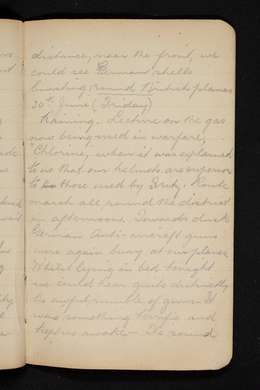 distance, near the front, we
could see German shells
bursting round British planes
30th June (Friday)
Raining. Lecture on the gas
now being used in warfare,
"Chlorine", when it was explained
to us that our helmets are superior
to those used by Fritz. Route
march all round the district
in afternoon. Towards dusk
German Anti-aircraft guns
were again busy at our planes
Whilst lying in bed tonight
we could hear quite distinctly
the awful rumble of guns. It
was something terrific and
kept us awake - The sound